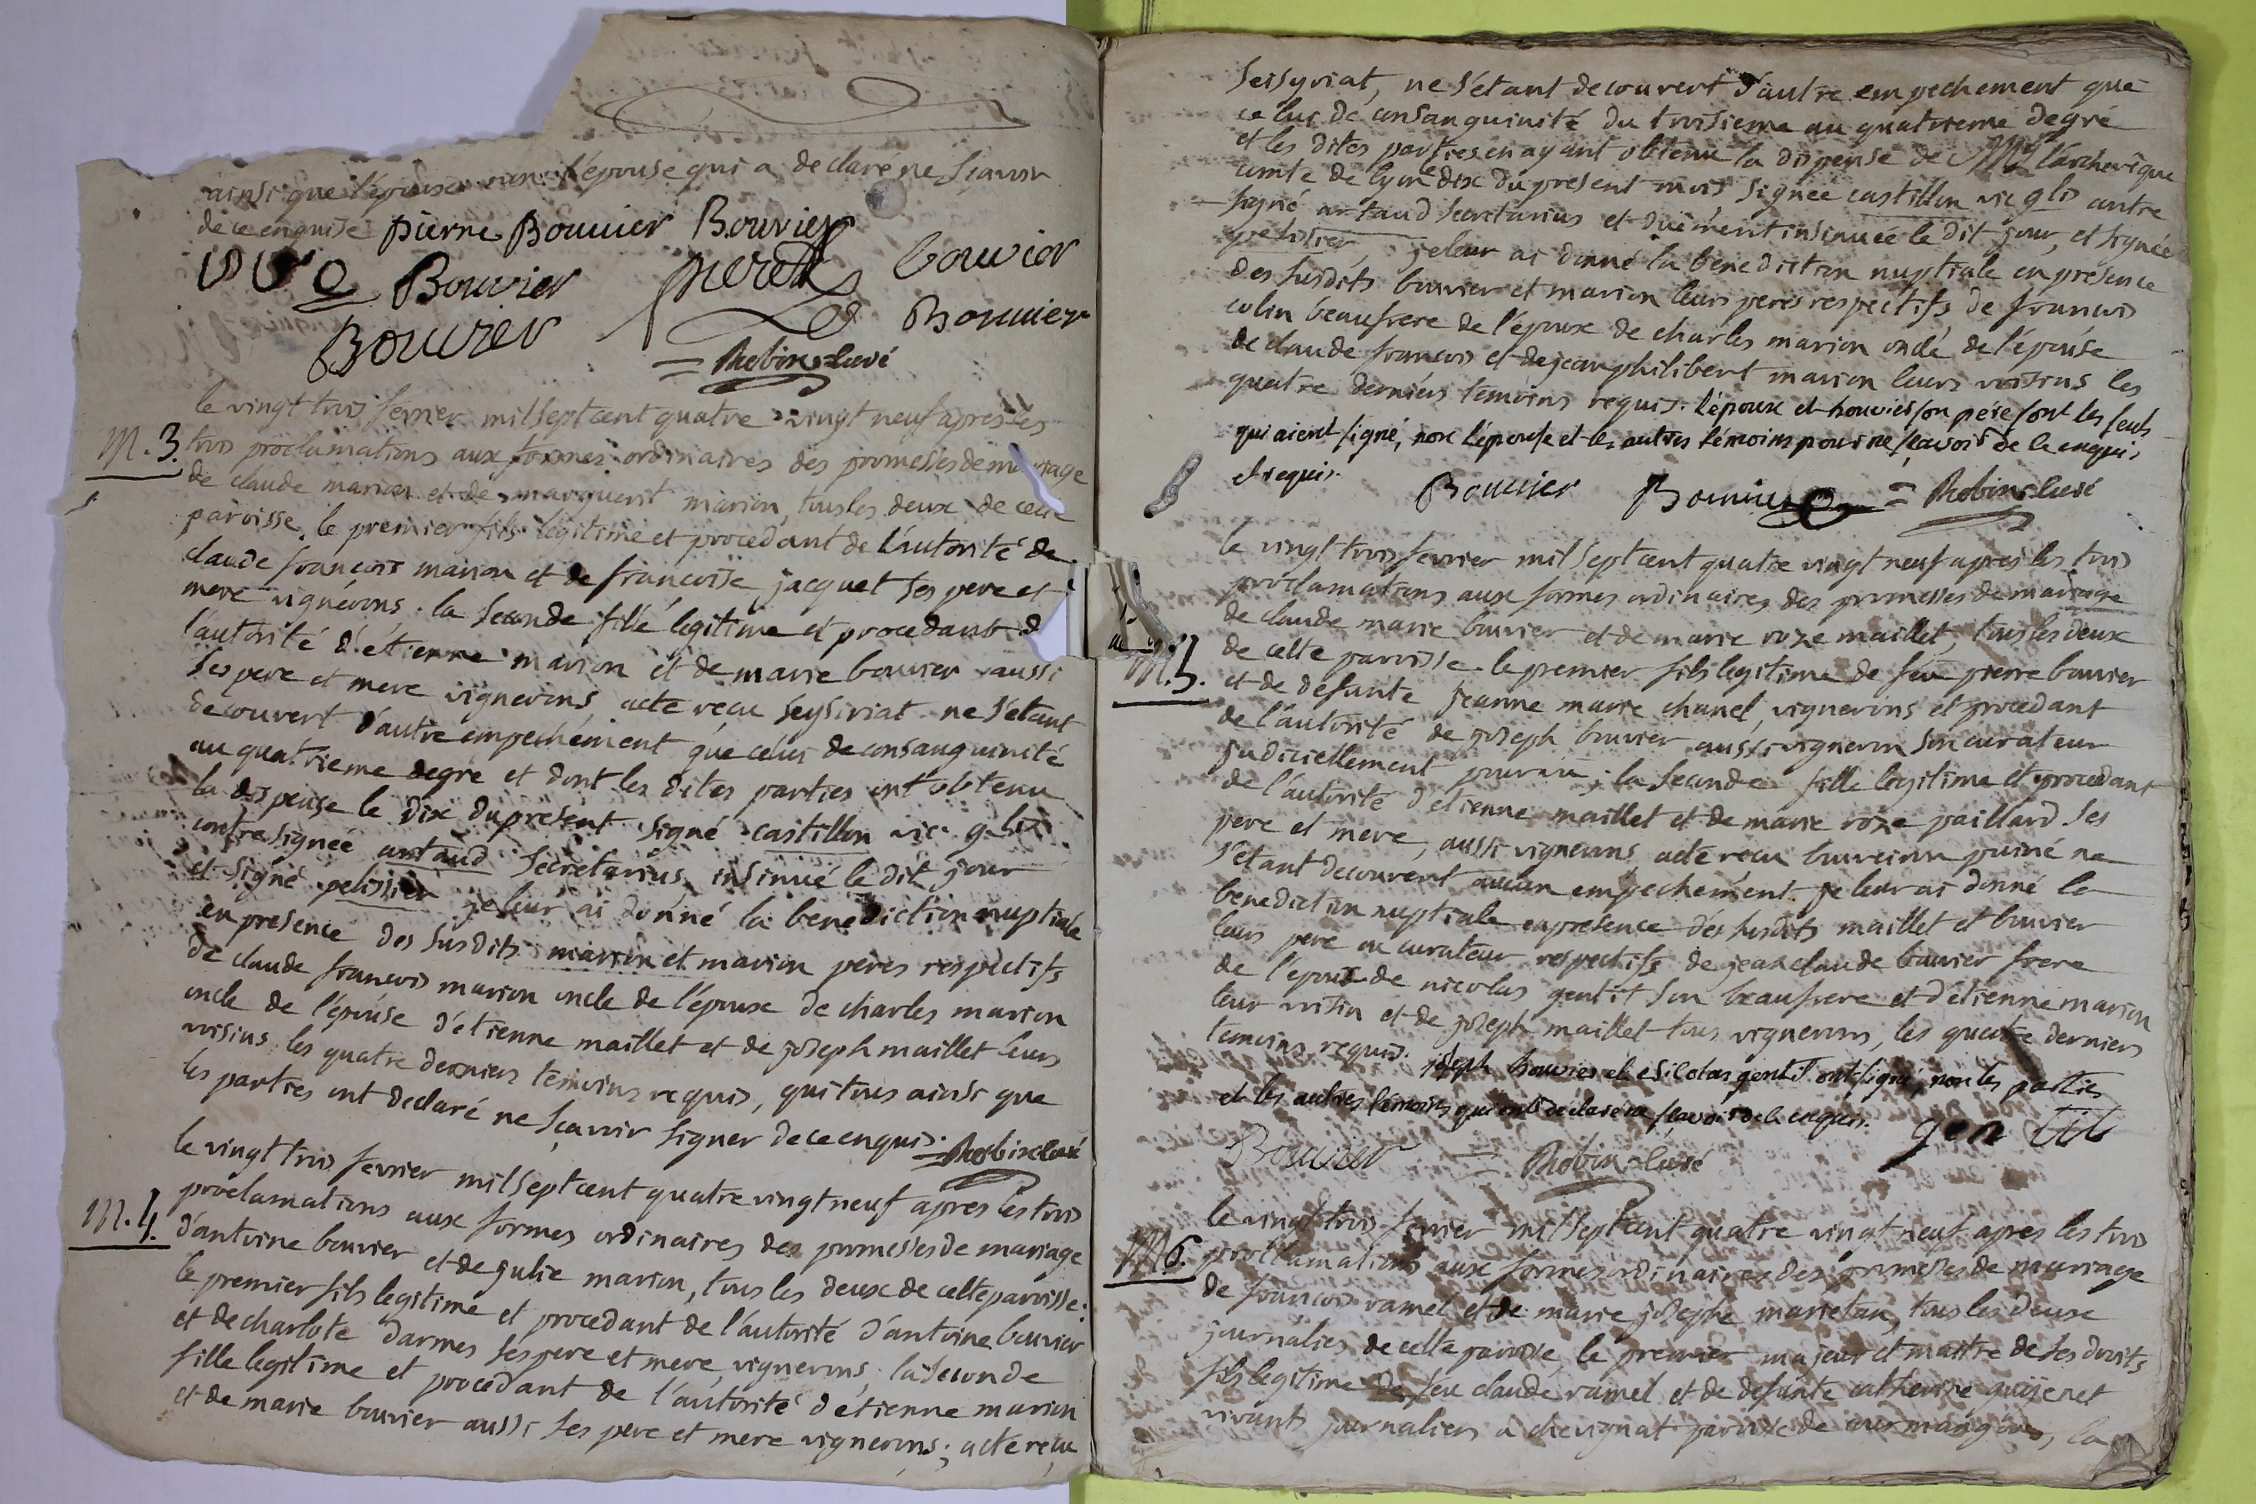 ainsi que l'épouse qui a declaré ne sçavoir
de ce enquise pierre Bouvier Bouvier
Bouvier perret bouvier
Bouvier Bouvier
= Robin curé
le vingt trois fevrier mil sept cent quatre vingt neuf apres les
M. 3. trois proclamations aux formes ordinaires des promesses de mariage
de claude marion et de marguerit marion, tous les deux de cette
paroisse. le premier fils legitime et procedant de l'autorité de
claude francois marion et de francoise jacquet ses pere et
mere vignerons. la seconde fille legitime et procedant d
l'autorité d'étienne marion et de marie bouvier aussi
ses pere et mere vignerons acte recu seysiriat ne s'étant
decouvert d'autre empechement que celui de consanguinité
au quatrieme degré et dont les dites parties ont obtenu
la dispense le dix du present signé castillon vic. glis
contresignée artaud secretarius insinué le dit jour
et signé pelissier je leur ai donné la benediction nuptiale
en presence des susdits marion et marion peres respectifs
de claude francois marion oncle de l'époux de charles marion
oncle de l'épouse d'étienne maillet et de joseph maillet leurs
voisins les quatre derniers temoins requis, qui tous ainsi que
les parties ont declaré ne sçavoir signer de ce enquis. = Robin curé
le vingt trois fevrier mil sept cent quatre vingt neuf apres les trois
proclamations aux formes ordinaires des promesses de mariage
M. 4. d'antoine bouvier et de julie marion, tous les deux de cette paroisse.
le premier fils legitime et procedant de l'autorité d'antoine bouvier
et de charlote darmes ses pere et mere, vignerons. la seconde
fille legitime et procedant de l'autorité d'étienne marion
et de marie bouvier aussi ses pere et mere vignerons; acte reçu
seisyriat, ne s'étant decouvert d'autre empechement que
celui de consanguinité du troisieme au quatrieme degré
et les dites parties en ayant obtenu la dispense de Mgr l'archevêque
comte de lyon le dix du present mois signée castillon vic glis contre
signé artaud secretarius et duement insinuée le dit jour, et signée
pelissier, je leur ai donné la benediction nuptiale en presence
des susdits bouvier et marion leurs peres respectifs de francois
colin beaufrere de l'époux de charles marion oncle de l'épouse
de claude francois et de jeanphilibert marion leurs voisins les
quatre derniers temoins requis. l'époux et bouvier son pére sont les seuls
qui aient signé, non l'épouse et les autres témoins pour ne sçavoir de ce enquis
et requis.
Bouvier Bouvier = Robin curé
le vingt trois fevrier mil sept cent quatre vingt neuf apres les trois
proclamations aux formes ordinaires des promesses de mariage
de claude marie bouvier et de marie roze maillet, tous les deux
M. 5. de cette paroisse. le premier fils legitime de feu pierre bouvier
et de defunte jeanne marie chanel, vignerons et procedant
de l'autorité de joseph bouvier aussi vigneron son curateur
judiciellement pourvu; la seconde fille legitime et procedant
de l'autorité d'etienne maillet et de marie roze paillard ses
pere et mere, aussi vignerons acte recu puiné ne
s'étant decouvert aucun empechement je leur ai donné la
benediction nuptiale en presence des susdits maillet et bouvier
leurs pere ou curateur respectifs de jean claude bouvier frere
de l'époux de nicolas gentit son beaufrere et d'étienne marion
leur voisin et de joseph maillet tous vignerons, les quatre derniers
temoins requis. joseph bouvier et nicolas gentil ont signé, non les parties
et les autres témoins qui ont declaré ne sçavoir de ce enquis.
Bouvier = Robin curé gen til
le vingt trois fevrier mil sept cent quatre vingt neuf apres les trois
M. 6. proclamations aux formes ordinaires des promesses de mariage
de francois ramel et de marie josephe marietan, tous les deux
journaliers de cette paroisse, le premier majeur et maitre de ses droits
fils legitime de feu claude ramel et de defunte catherine
vivants journaliers a chevignat paroisse de courmangoux, la